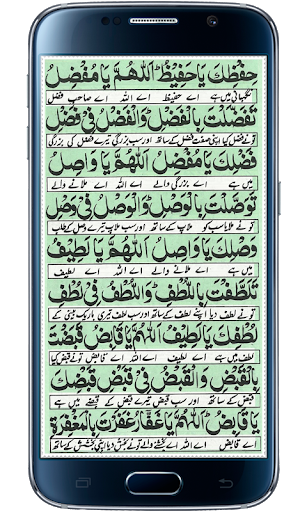 حِفْظِكَ يَا حَفِيْظُ اَللّٰهُمَّ يَا مُفْضِلُ
نگہبانی میں ہے اے حفیظ اے اللہ اے صاحبِ فضل
تَفَضَّلْتَ بِالْفَضْلِ وَالْفَضْلُ فِیْ فَضْلِ
تونے فضل کیا اپنی صفت فضل کے ساتھ اور سب فضل تیرے فضل کی بزرگی
فَضْلِكَ يَا مُفْضِلُ اَللّٰهُمَّ يَا وَاصِلُ
میں ہے اے بزرگی والے اے اللہ اے ملانے والے
تَوَصَّلْتَ بِالْوَصْلِ وَالْوَصْلُ فِیْ وَصْلِ
تونے ملایا سب کو ساتھ اور سب ملاپ تیرے ملاپ
وَصْلِكَ يَا وَاصِلُ اَللّٰهُمَّ يَا لَطِيْفُ
میں ہے اے ملانے والے اے اللہ اے لطیف
تَلَطَّفْتَ بِاللُّطْفِ وَاللُّطْفُ فِیْ لُطْفِ
تونے لطف کیا اپنے لطف کے ساتھ اور سب لطف تیری باریک بینی کے
لُطْفِكَ يَا لَطِيْفُ اَللّٰهُمَّ يَا قَابِضُ قَبَضْتَ
لطف میں ہے اے لطیف اے اللہ اے قابض تونے قبض کیا
بِالْقَبْضِ وَالْقَبْضُ فِیْ قَبْضِ قَبْضِكَ
قبض کے ساتھ اور سب قبض تیرے قبض کے قبضے میں ہے
يَا قَابِضُ اَللّٰهُمَّ يَا غَفَّارُ غَفَرْتَ بِالْمَغْفِرَةِ
اے قابض اے اللہ اے بخشنے والے تونے بخش دیا اپنی بخشش کے ساتھ